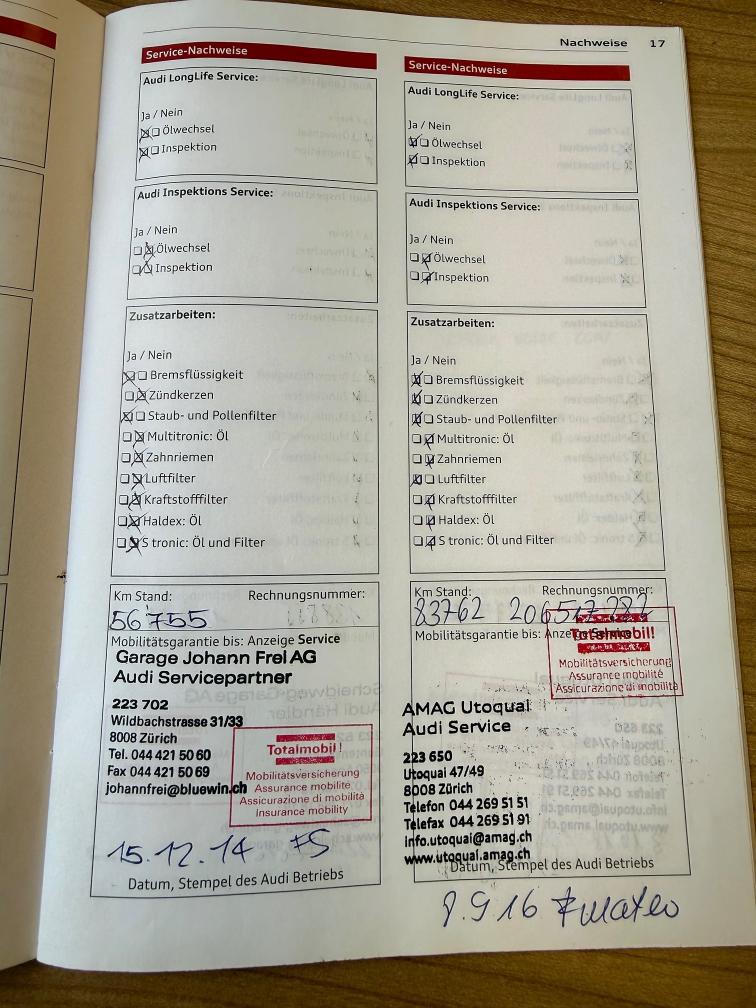 Nachweise 17
Service-Nachweise
Audi LongLife Service:
Ja / Nein
Ölwechsel
Inspektion
Audi Inspektions Service:
Ja / Nein
Ölwechsel
Inspektion
Zusatzarbeiten:
Ja / Nein
Bremsflüssigkeit
Zündkerzen
Staub- und Pollenfilter
Multitronic: Öl
Zahnriemen
Luftfilter
Kraftstofffilter
Haldex: Öl
S tronic: Öl und Filter
Km Stand: Rechnungsnummer:
56'755
Mobilitätsgarantie bis: Anzeige Service
Garage Johann Frei AG
Audi Servicepartner
223 702
Wildbachstrasse 31/33
8008 Zürich
Tel. 044 421 50 60
Fax 044 421 50 69
johannfrei@bluewin.ch
Totalmobil!
Mobilitätsversicherung
Assurance mobilité
Assicurazione di mobilità
Insurance mobility
15.12.14 FS
Datum, Stempel des Audi Betriebs
Service-Nachweise
Audi LongLife Service:
Ja / Nein
Ölwechsel
Inspektion
Audi Inspektions Service:
Ja / Nein
Ölwechsel
Inspektion
Zusatzarbeiten:
Ja / Nein
Bremsflüssigkeit
Zündkerzen
Staub- und Pollenfilter
Multitronic: Öl
Zahnriemen
Luftfilter
Kraftstofffilter
Haldex: Öl
S tronic: Öl und Filter
Km Stand: Rechnungsnummer:
83762 206517282
Mobilitätsgarantie bis: Anzeige Service
Totalmobil!
Mobilitätsversicherung
Assurance mobilité
Assicurazione di mobilità
AMAG Utoquai
Audi Service
223 650
Utoquai 47/49
8008 Zürich
Telefon 044 269 51 51
Telefax 044 269 51 91
info.utoquai@amag.ch
www.utoquai.amag.ch
Datum, Stempel des Audi Betriebs
8.9.16